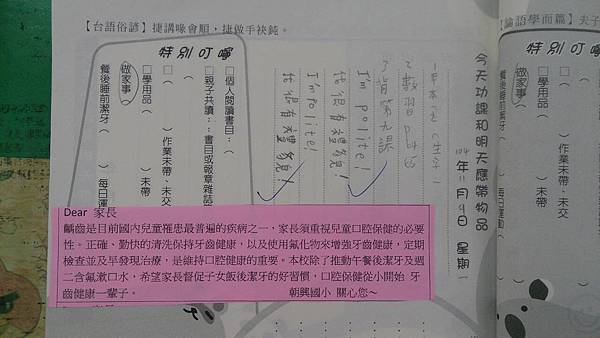 【台語俗諺】捷講喙會順，捷做手袂鈍。
【論語學而篇】夫子
今天功課和明天應帶物品
104年11月9日 星期一
2 數習p64.65
3 背第九課
I'm polite!
我很有禮貌！
I'm polite!
我很有禮貌！
特別叮嚀
□個人閱讀書目：（
□親子共讀：：書目或報章雜誌
□（　）作業未帶、未交
□學用品（　）未帶
做家事（
餐後睡前潔牙（　）每日運
特別叮嚀
□（
□學用品（
做家事（
餐後睡前潔牙（
Dear 家長
齲齒是目前國內兒童罹患最普遍的疾病之一，家長須重視兒童口腔保健的必要
性。正確、勤快的清洗保持牙齒健康，以及使用氟化物來增強牙齒健康，定期
檢查並及早發現治療，是維持口腔健康的重要。本校除了推動午餐後潔牙及週
二含氟漱口水，希望家長督促子女飯後潔牙的好習慣，口腔保健從小開始 牙
齒健康一輩子。 朝興國小 關心您～